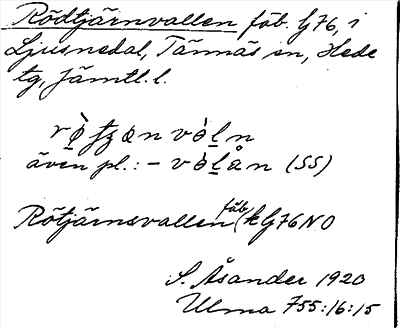 Rödtjärnvallen fäb. G76, i
Ljusnedal, Tännäs sn, Hede
tg, Jämtl. l.
även pl.: - vòlån (SS)
Rötjärnsvallen fäb (k G76 NO
S. Åsander 1920
Ulma 755:16:15